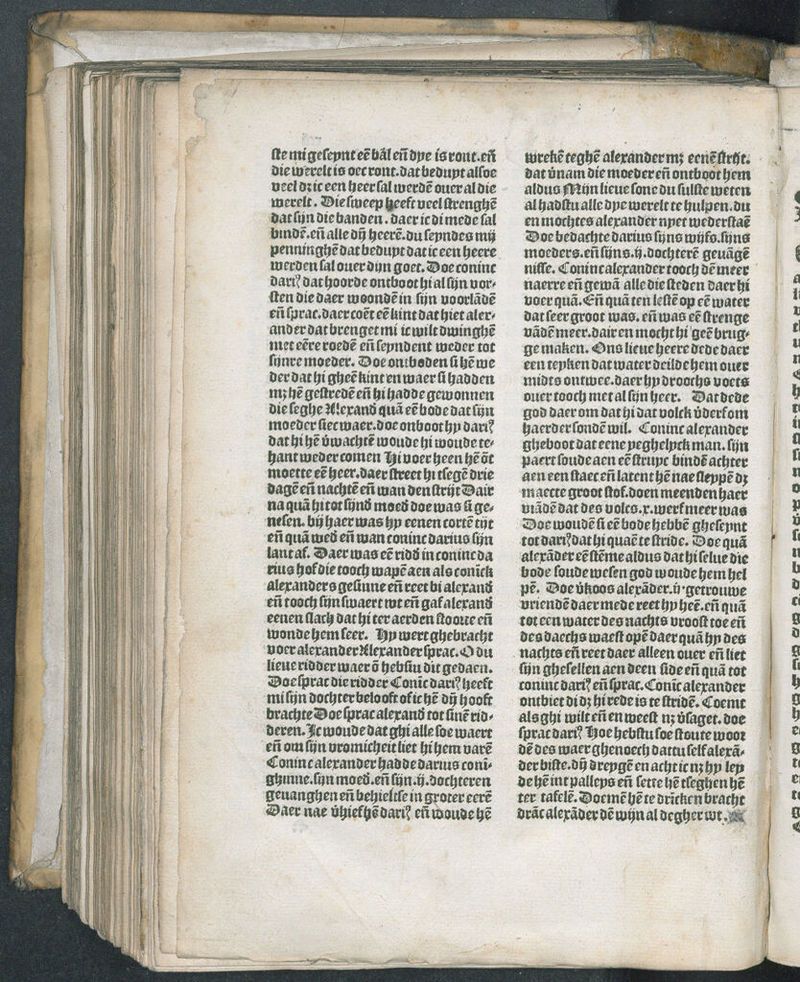 ste mi geseynt eē bal eñ dye is ront. eñ
die werelt is oec ront. dat beduyt alsoe
veel dz ic een heer sal werdē ouer al die
werelt. Die sweep heeft veel strenghē
dat sijn die banden. daer ic di mede sal
bindē. eñ alle dij heerē. du seyndes mij
penninghē dat beduyt dat ic een heere
werden sal ouer dijn goet. Doe coninc
dariꝰ dat hoorde ontboot hi al sijn vor-
sten die daer woondē in sijn voorlādē
eñ sprac. daer coēt eē kint dat hiet alex-
ander dat brenget mi ic wilt dwinghē
met eēre roedē eñ seyndent weder tot
sijnre moeder. Doe ontboden si hē we
der dat hi gheē kint en waer si hadden
mz hē gestredē eñ hi hadde gewonnen
die seghe Alexand̄ quā eē bode dat sijn
moeder siec waer. doe onboot hy dariꝰ
dat hi hē v̄wachtē woude hi woude te-
hant weder comen Hi voer heen hē ōt
moette eē heer. daer street hi tsegē drie
dagē eñ nachtē eñ wan den strijt Dair
na quā hi tot sijnd̄ moed̄ doe was si ge-
nesen. bij haer was hy eenen cortē tijt
eñ quā wed̄ eñ wan coninc darius sijn
lant af. Daer was eē ridd̄ in coninc da
rius hof die tooch wapē aen als conīck
alexanders gesinne eñ reet bi alexand̄
eñ tooch sijn swaert wt eñ gaf alexand̄
eenen slach dat hi ter aerden stoorte eñ
wonde hem seer. Hy wert ghebracht
voer alexander Alexander sprac. O du
lieue ridder waer ō hebstu dit gedaen.
Doe sprac die ridder Conīc dariꝰ heeft
mi sijn dochter belooft of ic hē dij hooft
brachte Doe sprac alexand̄ tot sinē rid-
deren. Ic woude dat ghi alle soe waert
eñ om sijn vromicheit liet hi hem varē
Coninc alexander hadde darius coni-
ghinne. sijn moed̄. eñ sijn .ij. dochteren
geuanghen eñ behieltse in groter eerē
Daer nae v̄hief hē dariꝰ eñ woude hē
wrekē teghē alexander mz eenē strijt.
dat v̄nam die moeder eñ ontboot hem
aldus Mijn lieue sone du sulste weten
al hadstu alle dye werelt te hulpen. du
en mochtes alexander nyet wederstaē
Doe bedachte darius sijns wijfs. sijns
moeders. eñ sijns .ij. dochterē geuāgē
nisse. Coninc alexander tooch dē meer
naerre eñ gewā alle die steden daer hi
voer quā. Eñ quā ten lestē op eē water
dat seer groot was. eñ was eē strenge
vādē meer. dair en mocht hi geē brug-
ge maken. Ons lieue heere dede daer
een teyken dat water deilde hem ouer
midts ontwee. daer hy droochs voets
ouer tooch met al sijn heer. Dat dede
god daer om dat hi dat volck v̄derf om
haerder sondē wil. Coninc alexander
gheboot dat eene yeghelyck man. sijn
paert soude aen eē struyc bindē achter
aen een staec eñ latent hē nae sleypē dz
maecte groot stof. doen meenden haer
viādē dat des volcs .x. werf meer was
Doe woudē si eē bode hebbē gheseynt
tot dariꝰ dat hi quaē te stride. Doe quā
alexāder eē stēme aldus dat hi selue die
bode soude wesen god woude hem hel
pē. Doe v̄koos alexāder .ij. getrouwe
vriendē daer mede reet hy hēē. eñ quā
tot een water des nachts vroost toe eñ
des daechs waest opē daer quā hy des
nachts eñ reet daer alleen ouer eñ liet
sijn ghesellen aen deen side eñ quā tot
coninc dariꝰ eñ sprac. Conīc alexander
ontbiet di dz hi rede is te stridē. Coemt
als ghi wilt eñ en weest nz v̄saget. doe
sprac dariꝰ Hoe hebstu soe stoute woor
dē des waer ghenoech dattu self alexā-
der biste. dij dreygē en acht ic nz hy ley
de hē int palleys eñ sette hē tseghen hē
ter tafelē. Doe mē hē te drīcken bracht
drāc alexāder dē wijn al degher wt.